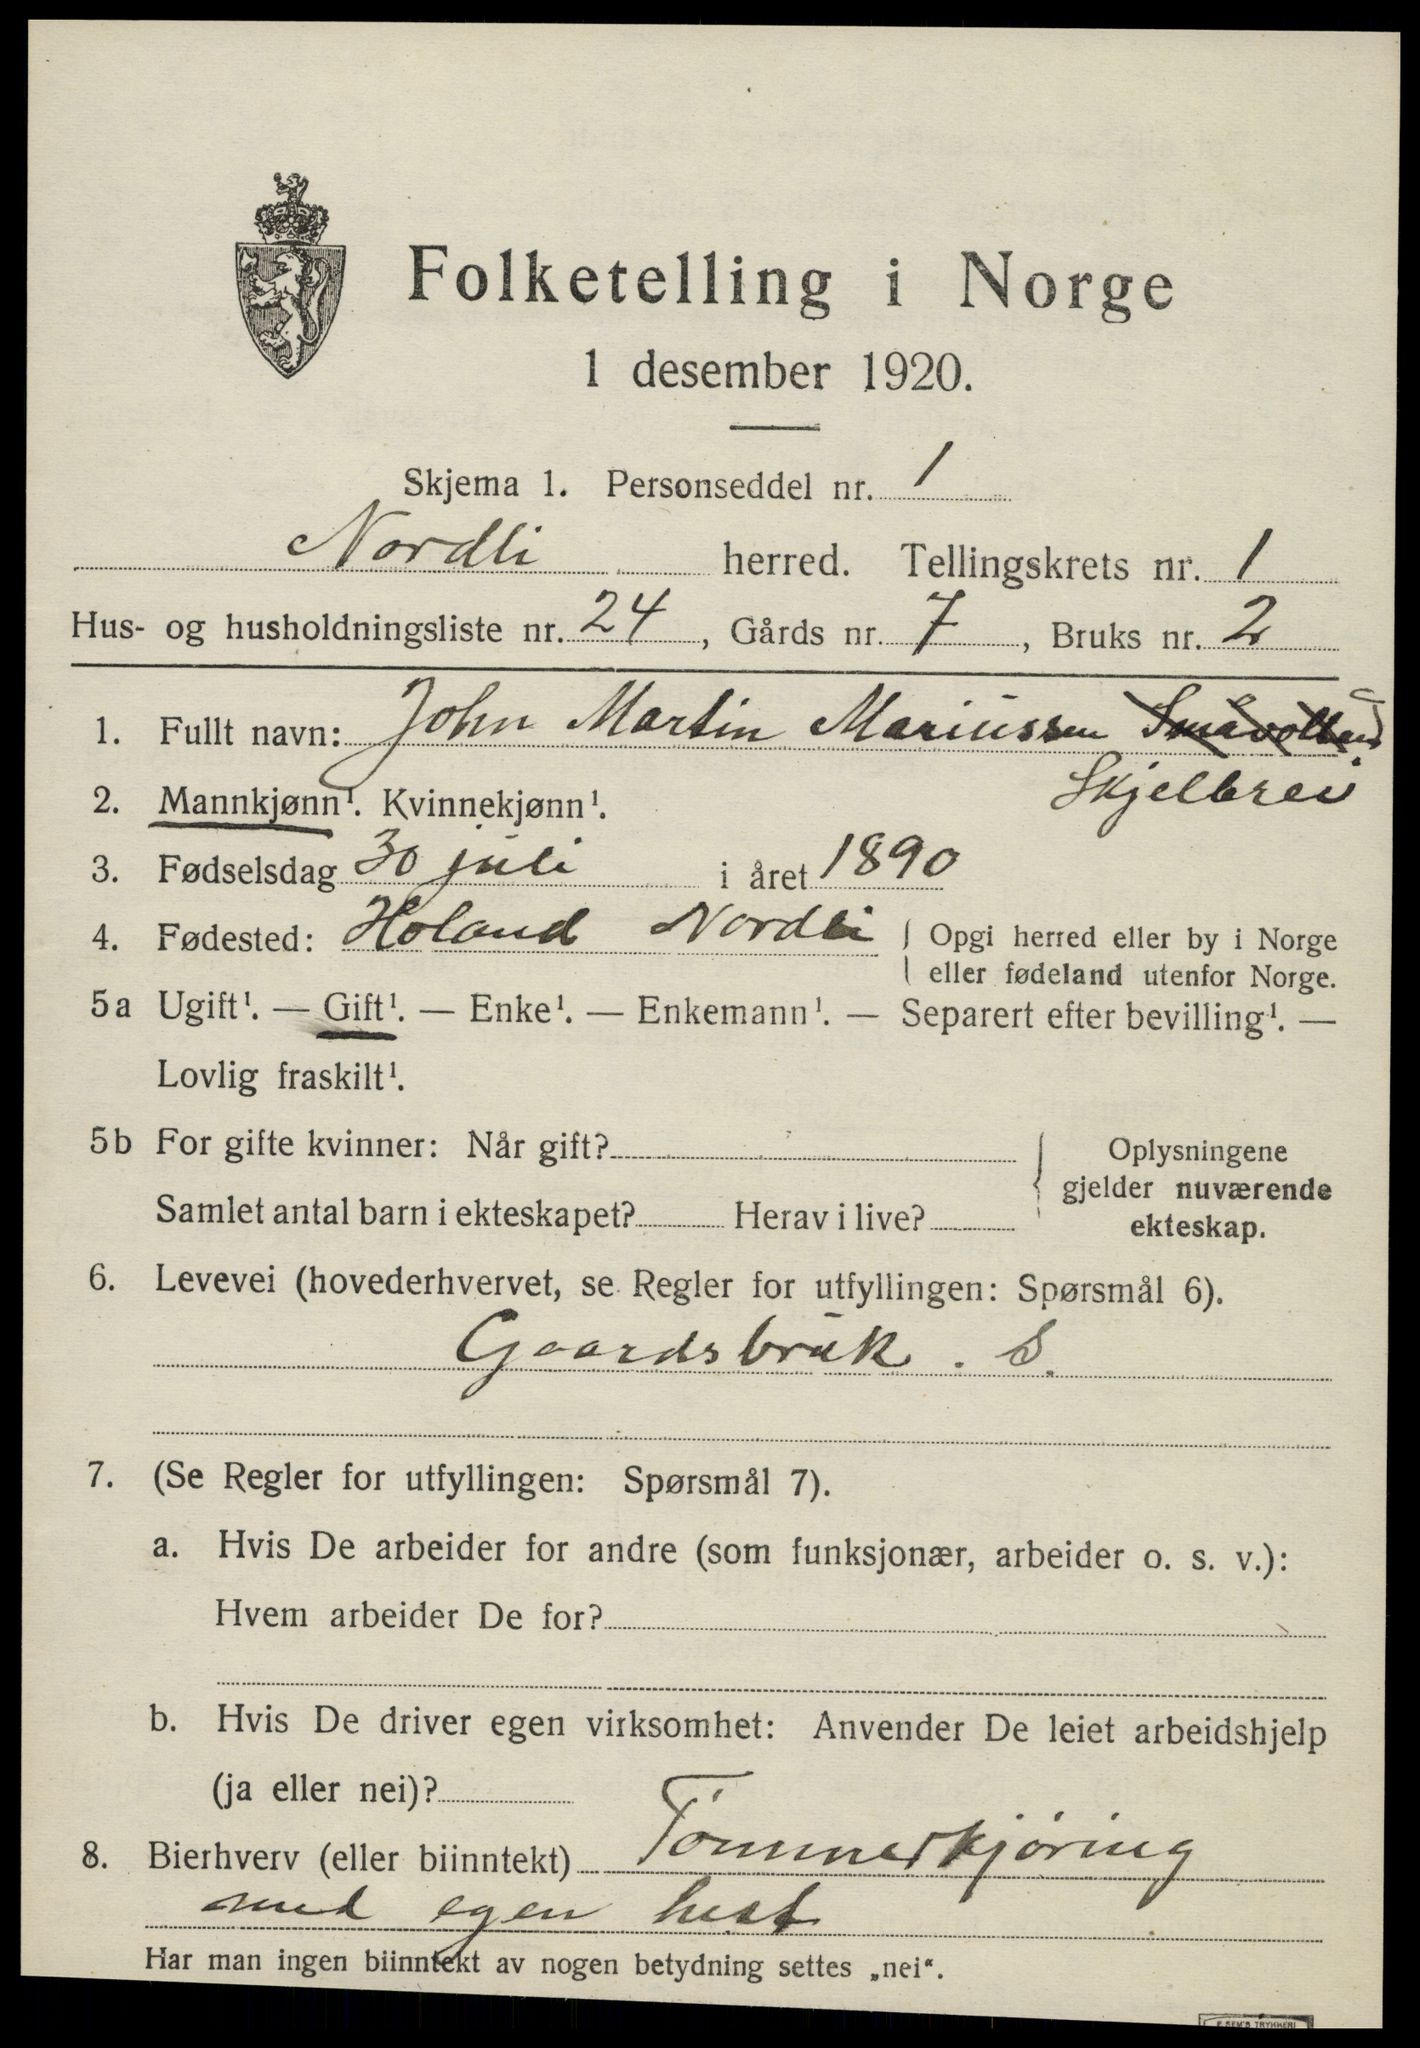 Folketelling i Norge
1 desember 1920.
Skjema 1. Personseddel nr. 1
Nordli herred. Tellingskrets nr. 1
Hus- og husholdningsliste nr. 24, Gårds nr. 7, Bruks nr. 2
1. Fullt navn: John Martin Mariussen
Skjelbrei
2. Mannkjønn¹. Kvinnekjønn¹.
3. Fødselsdag 30 juli i året 1890
4. Fødested: Holand Nordli { Opgi herred eller by i Norge
eller fødeland utenfor Norge.
5a Ugift¹. — Gift¹. — Enke¹. — Enkemann¹. — Separert efter bevilling¹. —
Lovlig fraskilt¹.
5b For gifte kvinner: Når gift? { Oplysningene
gjelder nuværende
Samlet antal barn i ekteskapet? Herav i live? ekteskap.
6. Levevei (hovederhvervet, se Regler for utfyllingen: Spørsmål 6).
Gaardsbruk. S.
7. (Se Regler for utfyllingen: Spørsmål 7).
a. Hvis De arbeider for andre (som funksjonær, arbeider o. s. v.):
Hvem arbeider De for?
b. Hvis De driver egen virksomhet: Anvender De leiet arbeidshjelp
(ja eller nei)?
8. Bierhverv (eller biinntekt) Tømmerkjøring
med egen hest
Har man ingen biinntekt av nogen betydning settes „nei“.